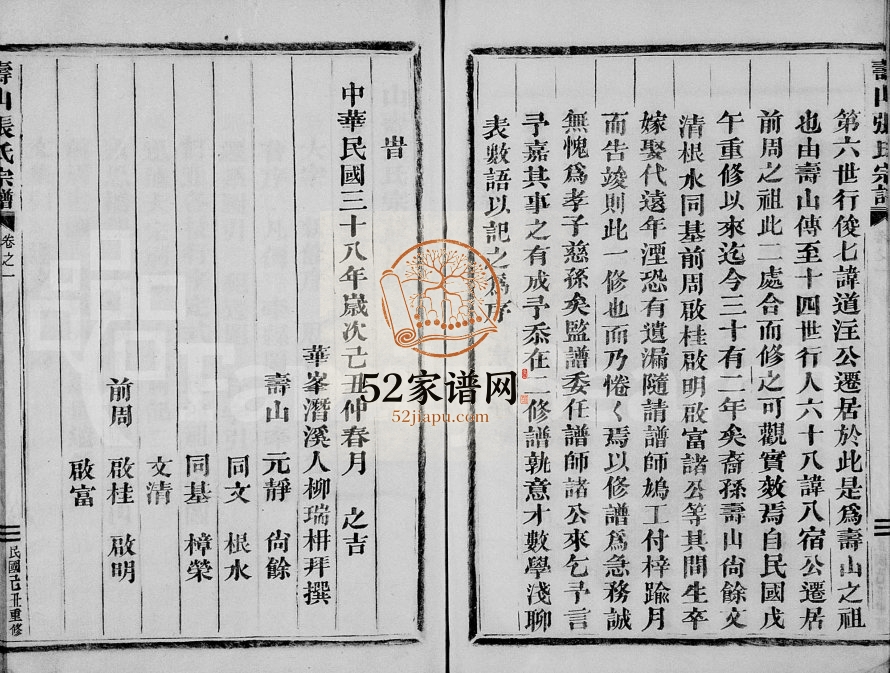 壽山張氏宗譜
第六世行俊七諱道汪公遷居於此是爲壽山之祖
也由壽山傳至十四世行人六十八諱八宿公遷居
前周之祖此二處合而修之可觀實效焉自民國戊
午重修以來迄今三十有二年矣裔孫壽山尙餘文
清根水同基前周啟桂啟明啟富諸公等其間生卒
嫁娶代遠年湮恐有遺漏隨請譜師鳩工付梓踰月
而告竣則此一修也而乃惓〱焉以修譜爲急務誠
無愧爲孝子慈孫矣監譜委任譜師諸公來乞予言
予嘉其事之有成予忝在二修譜執意才數學淺聊
表數語以記之爲序
旹
中華民國三十八年歲次己丑仲春月 之吉
華峯潛溪人柳瑞枏拜撰
壽山 元靜 尙餘
同文 根水
同基 樟榮
文清
前周 啟桂 啟明
啟富
壽山張氏宗譜 卷之一 民國己丑重修
52家谱网
52jiapu.com